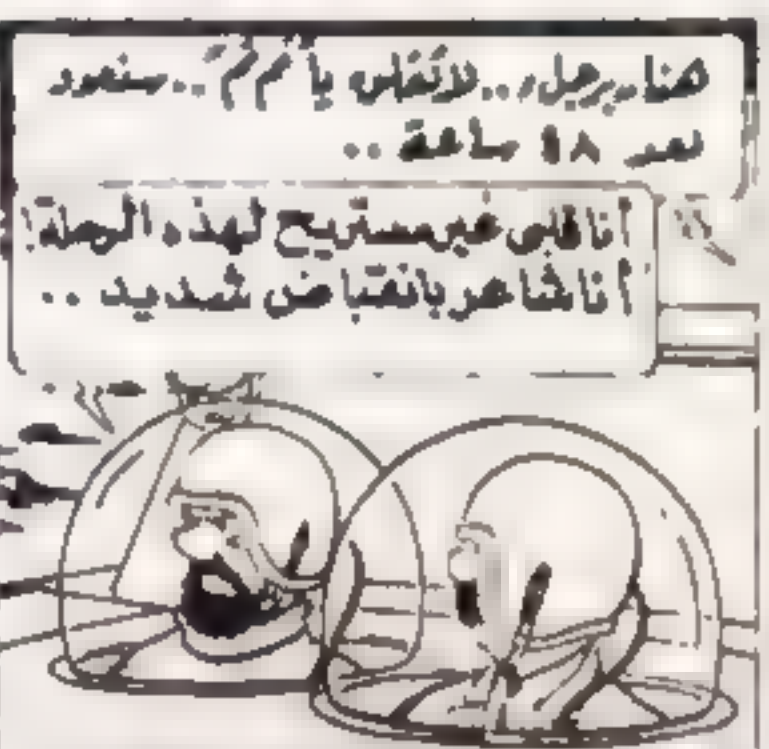 لاتقلق يا "م م" .. سنعود
بعد ١٨ ساعة ..
أنا قلبى غير مستريح لهذه الرحلة!
أنا شاعر بانقباض شديد ..